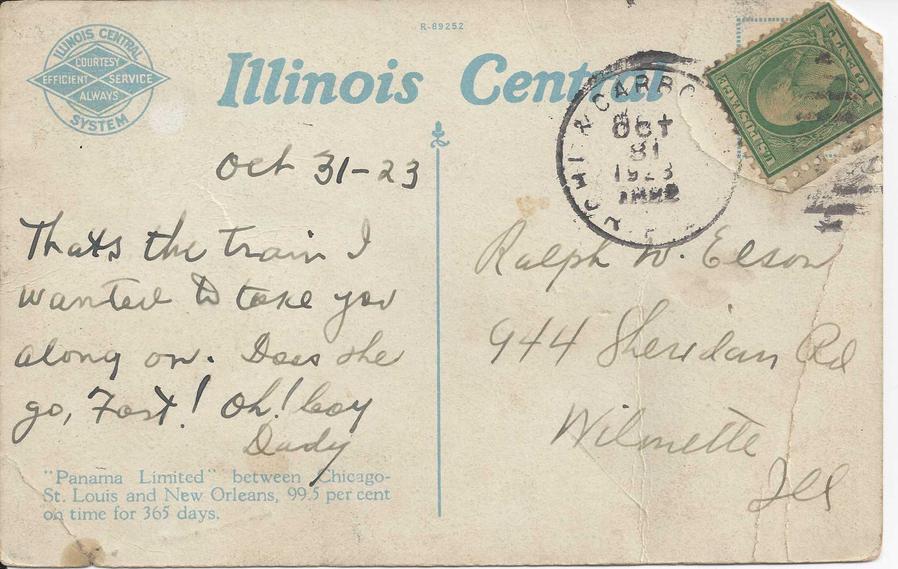 R-89252
ILLINOIS CENTRAL
COURTESY
EFFICIENT SERVICE
ALWAYS
SYSTEM
Illinois Central
CHI & CARBO
OCT
31
1923
Oct 31-23
Thats the train I
wanted to take you
along on. Does she
go, Fast! Oh! boy
Dady
"Panama Limited" between Chicago-
St. Louis and New Orleans, 99.5 per cent
on time for 365 days.
Ralph W. Elson
944 Sheridan Rd
Wilmette
Ill